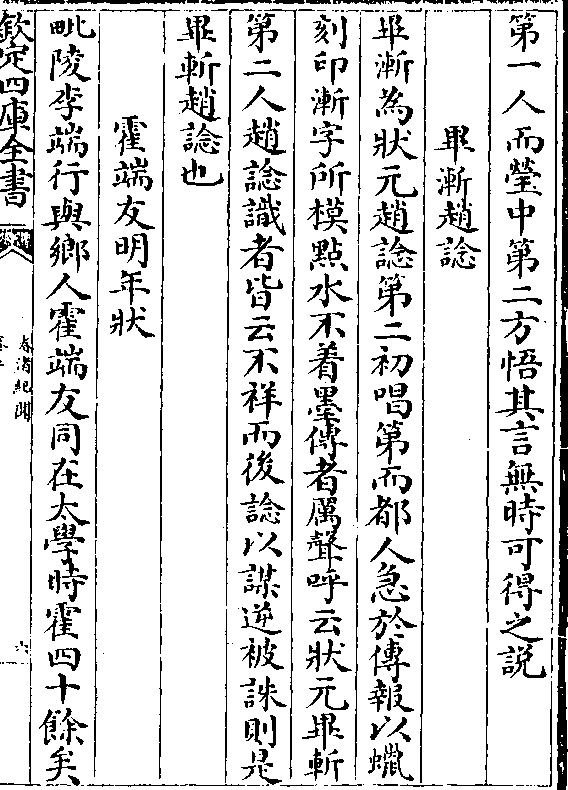 第一人而瑩中第二方悟其言無時可得之説
畢漸趙諗
畢漸為狀元趙諗第二初唱第而都人急於傳報以蠟
刻印漸字所模點水不着墨傳者厲聲呼云狀元畢斬
第二人趙諗識者皆云不祥而後諗以謀逆被誅則是
畢斬趙諗也
霍端友明年狀
毗陵李端行與鄉人霍端友同在太學時霍四十餘矣
欽定四庫全書
春渚紀聞
六